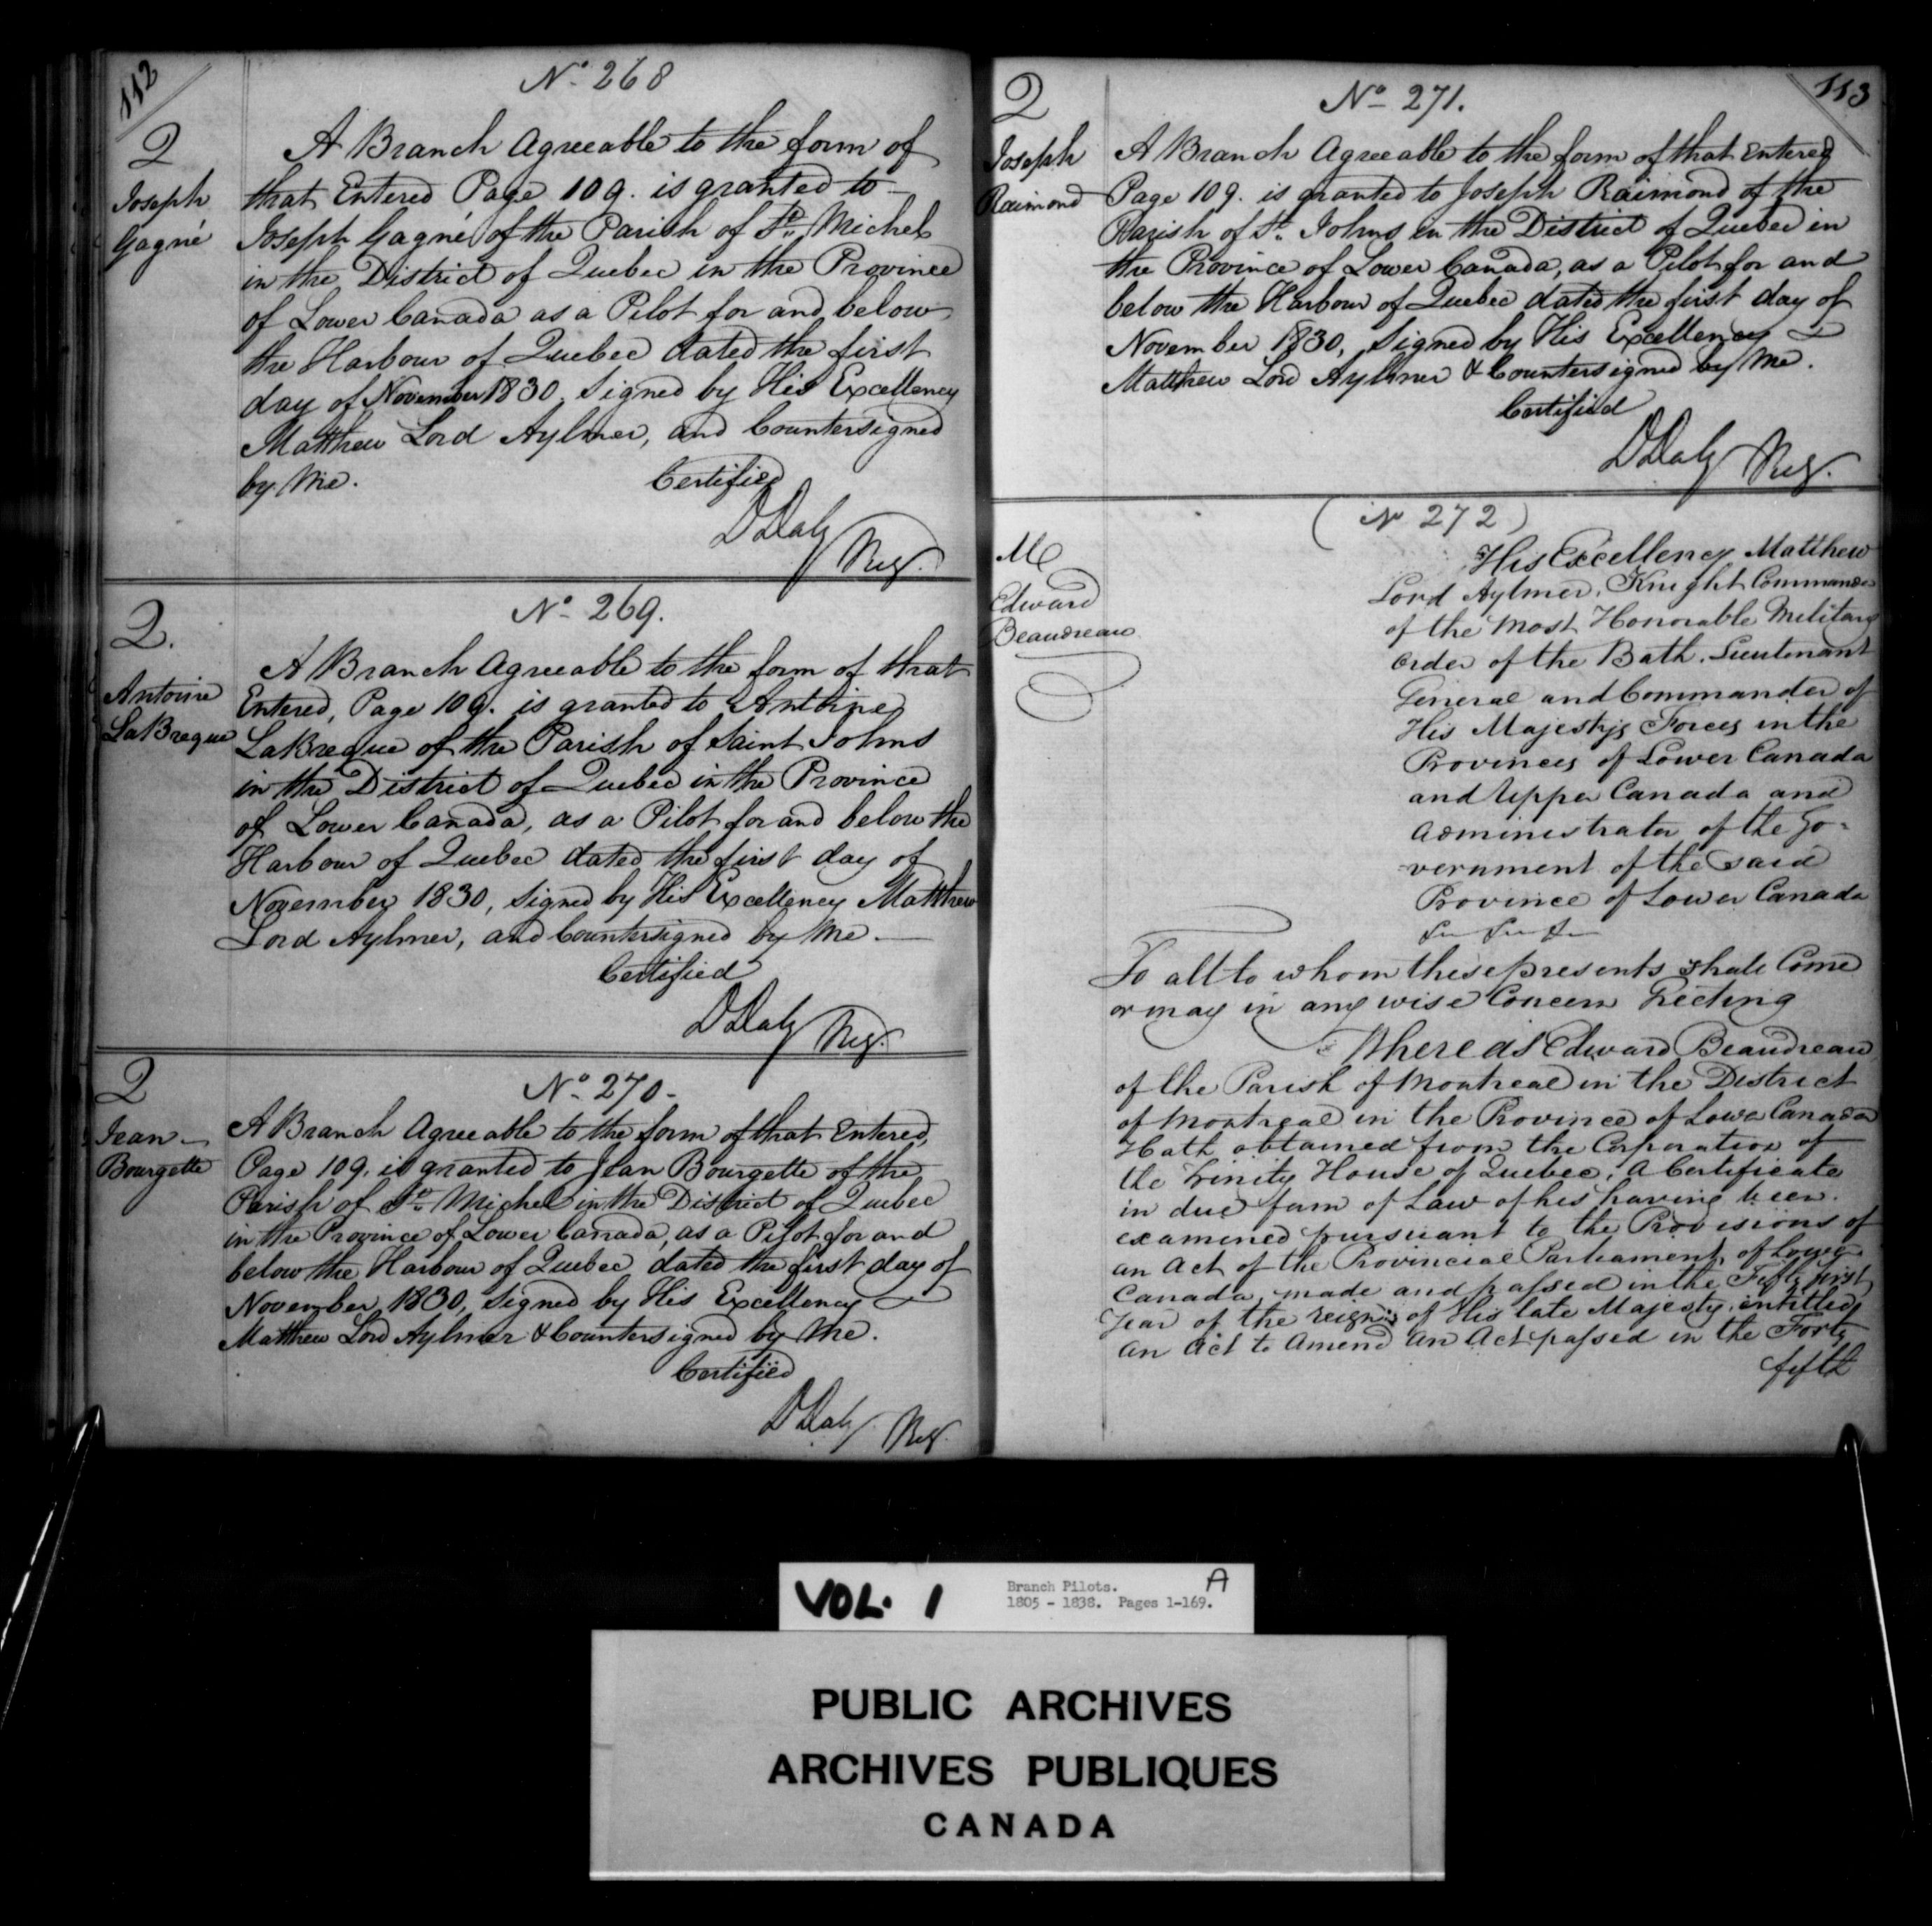 112
No. 268
2
Joseph
Gagné
A Branch Agreeable to the form of
that Entered Page 109. is granted to
Joseph Gagné of the Parish of St. Michel
in the District of Quebec in the Province
of Lower Canada as a Pilot for and below
the Harbour of Quebec dated the first
day of November 1830. Signed by His Excellency
Matthew Lord Aylmer, and Countersigned
by Me.
Certified
D Daly
Reg.
No. 269.
2.
Antoine
LaBreque
A Branch Agreeable to the form of that
Entered, Page 109. is granted to Antoine
LaBreque of the Parish of Saint Johns
in the District of Quebec in the Province
of Lower Canada, as a Pilot for and below the
Harbour of Quebec dated the first day of
November 1830, Signed by His Excellency Matthew
Lord Aylmer, and Countersigned by Me. —
Certified
D Daly Reg.
No. 270 -
2
Jean —
Bourgette
A Branch Agreeable to the form of that Entered,
Page 109. is granted to Jean Bourgette of the
Parish of St. Michel in the District of Quebec
in the Province of Lower Canada, as a Pilot for and
below the Harbour of Quebec dated the first day of
November 1830, Signed by His Excellency
Matthew Lord Aylmer & Countersigned by Me.
Certified
D Daly Reg.
113
No 271.
2
Joseph
Raimond
A Branch Agreeable to the form of that Entered
Page 109. is granted to Joseph Raimond of the
Parish of St. Johns in the District of Quebec in
the Province of Lower Canada, as a Pilot for and
below the Harbour of Quebec dated the first day of
November 1830, Signed by His Excellency
Matthew Lord Aylmer & Countersigned by Me.
Certified
D Daly Reg.
(No 272)
M
Edward
Beaudreau
His Excellency Matthew
Lord Aylmer, Knight Commander
of the Most Honorable Military
Order of the Bath. Lieutenant
General and Commander of
His Majesty's Forces in the
Provinces of Lower Canada
and Upper Canada and
Administrator of the Go-
vernment of the said
Province of Lower Canada
To all to whom these presents shall Come
or may in any wise Concern Greeting
Whereas Edward Beaudreau
of the Parish of Montreal in the District
of Montreal in the Province of Lower Canada
Hath obtained from the Corporation of
the Trinity House of Quebec, A Certificate
in due form of Law of his having been
examined pursuant to the Provisions of
an Act of the Provincial Parliament of Lower
Canada, made and passed in the Fifty first
Year of the reign of His late Majesty, intitled
An Act to Amend An Act passed in the Forty
fifth
VOL. 1
Branch Pilots.
1805 - 1838. Pages 1-169.
A
PUBLIC ARCHIVES
ARCHIVES PUBLIQUES
CANADA